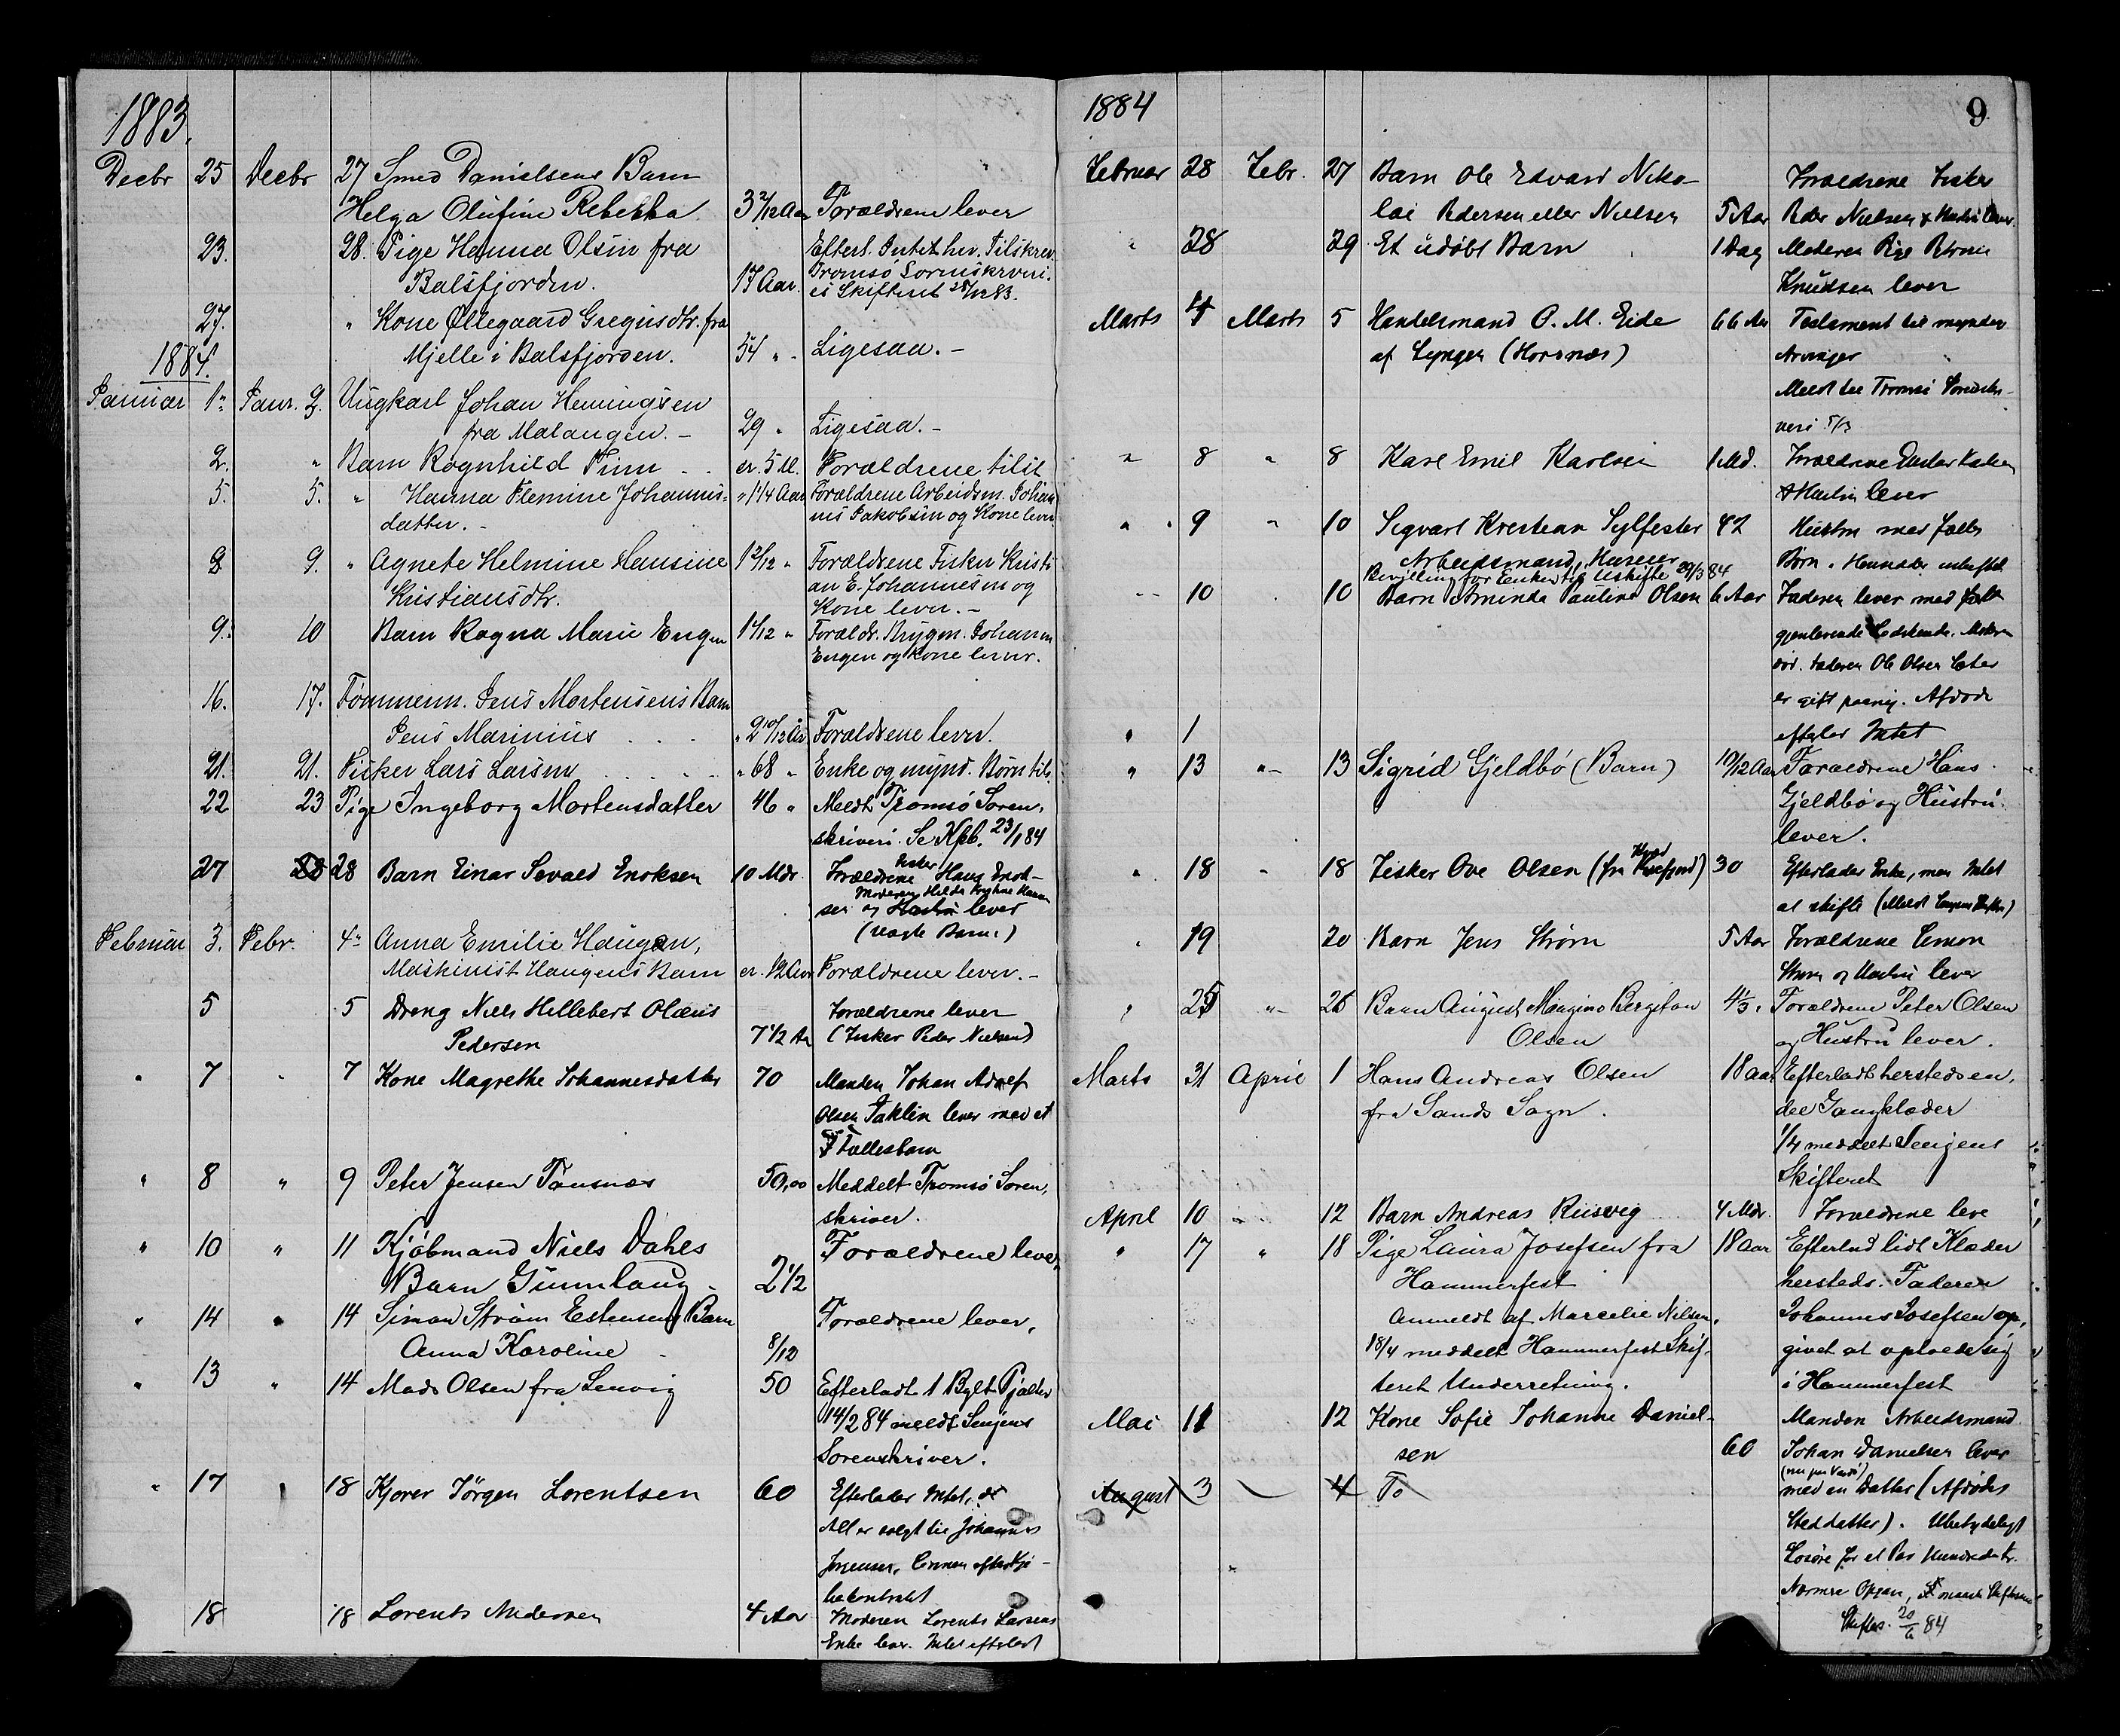 1883.
Decbr 25 Decbr 27 Smed Danielsens Barn
Helga Olufine Rebekka 3 2/12 Aar Forældrene lever
23. 28. Pige Hanna Olsen fra Efterl. Intet her. Tilskrev.
Balsfjorden. 17 Aar. Tromsö Sorenskriveri.
27. " Kone Øllegaard Gregusdtr. fra
Mjelle i Balsfjorden. 54 " Ligesaa.-
1884.
Januar 1" Janr. 2. Ungkarl Johan Hemingsen
fra Malangen.- 29 " Ligesaa.-
2. " Barn Ragnhild Finn . . er. 5 M. Forældrene
5. 5. " Hanna Flemine Johannis- " 1 1/4 Aar Forældrene Arbeidsm. Johan
datter.- nes Jakobsen og Kone lever
8 9. " Agnete Helmine Hansine 1 2/12 " Forældrene Fisker Kristi
Kristiansdtr. an E. Johannesen og
Kone lever.-
9. 10 Barn Ragna Marie Engen 1 1/12 " Forældr. Johann
Engen og Kone lever.
16. 17. Tømmerm. Jens Mortensens Barn
Jens Marinius . . . " 2 10/12 Aar Forældrene lever.
21. 21. Fisker Lars Larsen . . . . . " 68 " Enke og mynd. Børn
22 23 Pige Ingeborg Mortensdatter 46 " Meldt Tromsö Soren,
skriveri. Se Kpb. 23/1 84
27 28 28 Barn Einar Sevald Enoksen 10 Mdr. Forældrene Fisker Hans Enok-
Moderen Helda
sen og Hustru lever
Februar 3. Febr. 4" Anna Emilie Haugen,
Maskinist Haugens Barn er. 1/2 Aar Forældrene lever.-
5 5 Dreng Niels Hillebert Olæus Forældrene lever
Pedersen 7 1/2 Aar (Fisker Peder Nielsen)
" 7 " 7 Kone Magrethe Johannesdatter 70 Manden Johan Adolf
Olsen lever med et
Fællesbarn
" 8 " 9 Peter Jensen Tønsnæs 50,00 Meddelt Tromsö Soren,
skriver.
" 10 " 11 Kjøbmand Niels Dahls Forældrene lever,
Barn Gunnlaug - 2 1/2
" 14 " 14 Simon Strøm Estensens Barn Forældrene lever,
Anna Karoline - 8/12
" 13 " 14 Mads Olsen fra Lenvig 50 Efterladt 1 Bylt Pjalter
14/2 84 meldt Senjens
Sorenskriver.
" 17 " 18 Kjører Jörgen Lorentsen 60 Efterlader Intet,
All er solgt til Johannes
Jörgensen,
18 18 Lorents Andersen 4 Aar Moderen Lorents Larsens
Enke lever. Intet efterladt
1884 9
Februar 28 Febr. 27 Barn Ole Edvard Niko- Forældrene Fisker
lai Pedersen eller Nielsen 5 Aar Peder Nielsen & Hustru lever
" 28 29 Et udöbt Barn 1 Dag Moderen Pige
Knudsen lever
Marts 4 Marts 5 Handelsmand O. M. Eide 66 Aar Testament til myndige
af Lyngen (Horsnæs) Arvinger
Meldt til Tromsö Sorenskri-
veri 5/3
" 8 " 8 Karl Emil Karlsen 1 Md. Forældrene
& Hustru lever
" 9 " 10 Sigvart Kristian Sylfester 42 Hustru med fælles
Arbeidsmand, Börn.
Bevilling for Enken til Uskifte 29/3 84
" 10 " 10 Barn Aminda Pauline Olsen 6 Aar Faderen lever med
gjenlevende Södskende. Moderen
död. Faderen Ole Olsen
er gift paany. Afdöde
" 1 efterlod Intet
" 13 " 13 Sigrid Gjeldbø (Barn) 10/12 Aar Forældrene Hans
Gjeldbø og Hustru
lever.
" 18 " 18 Fisker Ove Olsen (fra 30 Efterlader Enke, men Intet
at skifte
" 19 20 Barn Jens Ström 5 Aar Forældrene Simon
Ström og Hustru lever
" 25 " 26 Barn August Bergiton 4 1/3 " Forældrene Peter Olsen
Olsen og Hustru lever.
Marts 31 April 1 Hans Andreas Olsen 18 aar Efterladt hersteds en,
fra Sands Sogn. del Gangklæder
1/4 meddelt Senjens
Skifteret
April 10 " 12 Barn Andreas Risveg 4 Mdr. Forældrene leve
" 17 " 18 Pige Laura Josefsen fra 18 Aar Efterlod lidt Klæder
Hammerfest hersteds. Faderen
Anmeldt af Marcelie Nilsen. Johannes Josefsen op,
18/4 meddelt Hammerfest Skif- givet at opholde sig
teret Underretning. i Hammerfest
Mai 11 12 Kone Sofie Johanne Daniel- Manden Arbeidsmand
sen 60 Johan Danielsen lever
August 3 4 To med en Datter (Afdödes
Steddatter). Ubetydeligt
Lösöre for et Par Hundrede Kr.
Skiftes. 20/6 84